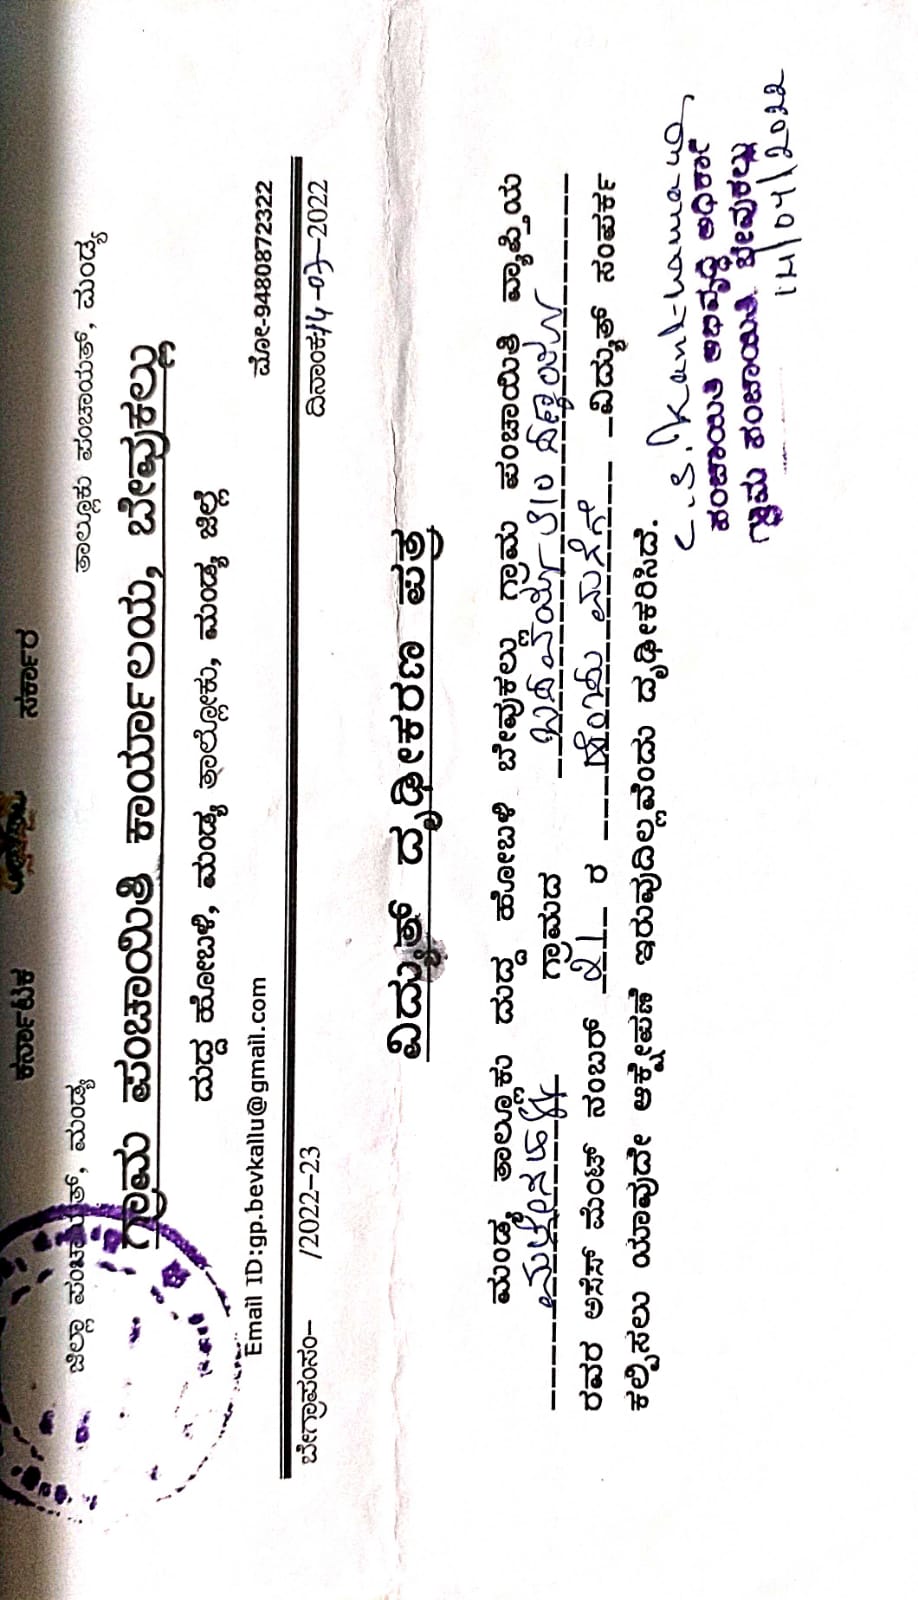 ಕರ್ನಾಟಕ ಸರ್ಕಾರ
ಜಿಲ್ಲಾ ಪಂಚಾಯತ್, ಮಂಡ್ಯ ತಾಲ್ಲೂಕು ಪಂಚಾಯತ್, ಮಂಡ್ಯ
ಗ್ರಾಮ ಪಂಚಾಯಿತಿ ಕಾರ್ಯಾಲಯ, ಬೇವುಕಲ್ಲು
ಮದ್ದ ಹೋಬಳಿ, ಮಂಡ್ಯ ತಾಲ್ಲೋಕು, ಮಂಡ್ಯ ಜಿಲ್ಲೆ
Email ID:gp.bevkallu@gmail.com ಮೋ-9480872322
ಬೇಗ್ರಾಪಂಸಂ- /2022-23 ದಿನಾಂಕ:14-07-2022
ವಿದ್ಯುತ್ ದೃಢೀಕರಣ ಪತ್ರ
ಮಂಡ್ಯ ತಾಲ್ಲೂಕು ಮದ್ದ ಹೋಬಳಿ ಬೇವುಕಲ್ಲು ಗ್ರಾಮ ಪಂಚಾಯಿತಿ ವ್ಯಾಪ್ತಿಯ
ಗ್ರಾಮದ
ರವರ ಅಸೆಸ್ ಮೆಂಟ್ ನಂಬರ್ 21 ರ ಮನೆಗೆ ವಿದ್ಯುತ್ ಸಂಪರ್ಕ
ಕಲ್ಪಿಸಲು ಯಾವುದೇ ಆಕ್ಷೇಪಣೆ ಇರುವುದಿಲ್ಲವೆಂದು ದೃಢೀಕರಿಸಿದೆ.
ಪಂಚಾಯಿತಿ ಅಭಿವೃದ್ಧಿ ಅಧಿಕಾರಿ
ಗ್ರಾಮ ಪಂಚಾಯಿತಿ ಬೇವುಕಲ್ಲು
14/07/2022